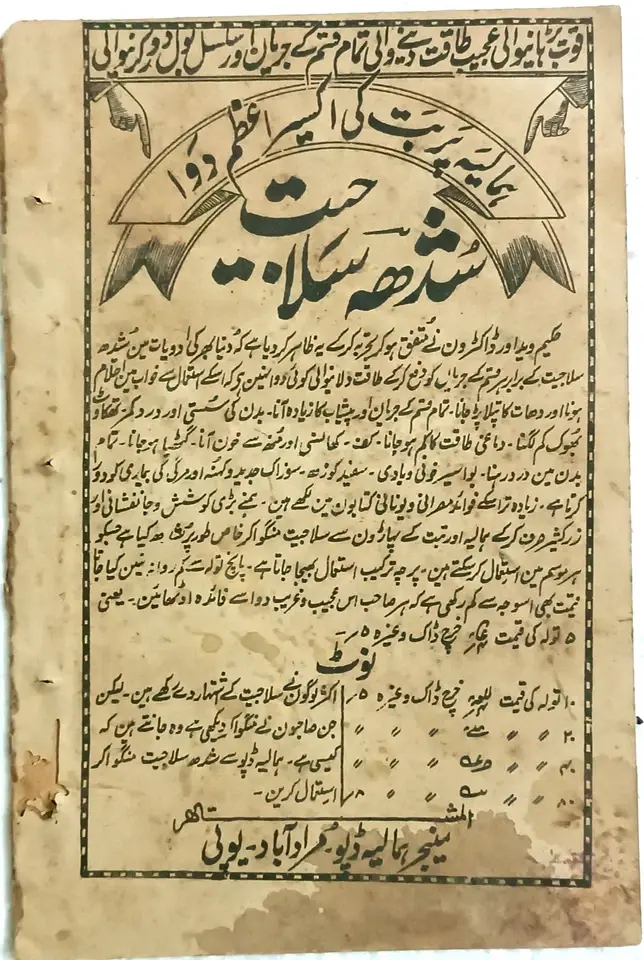 قوت بڑہانیوالی عجیب طاقت دینے والی تمام قسم کے جریان اور سلسل بول دور کرنیوالی
ہمالیہ پربت کی اکسیر اعظم دوا
شدھ سلاجیت
حکیم وید اور ڈاکٹرون نے متفق ہو کر تجربہ کر کے یہ ظاہر کر دیا ہے کہ دنیا بھر کی ادویات مین شدھ
سلاجیت کے برابر ہر قسم کے جریان کو دفع کر کے طاقت دلانیوالی کوئی دوا نہین ہے کہ اسکے استعمال سے خواب مین احتلام
ہونا اور دھات کا پتلا پڑ جانا۔ تمام قسم کے جریان اور پیشاب کا زیادہ آنا۔ بدن کی سستی اور درد کمر۔ تھکاوٹ
بھوک کم لگنا۔ دماغی طاقت کا کم ہو جانا۔ کف۔ کھانسی اور منھ سے خون آنا۔ گٹھیا ہو جانا۔ تمام
بدن مین درد رہنا۔ بواسیر خونی و بادی۔ سفید کوڑھ۔ سوزاک جدید و کہنہ اور مرگی کی بیماری کو دور
کرتا ہے۔ زیادہ تر اسکے فوائد مصرانی و یونانی کتابون مین لکھے ہین۔ ہمنے بڑی کوشش و جانفشانی اور
زر کثیر صرف کر کے ہمالیہ اور تبت کے پہاڑون سے سلاجیت منگوا کر خاص طور پر شدھ کیا ہے جسکو
ہر موسم مین استعمال کر سکتے ہین۔ پرچہ ترکیب استعمال بھیجا جاتا ہے۔ پانچ تولہ سے کم روانہ نہین کیا جاتا
قیمت بھی اسوجہ سے کم رکھی ہے کہ ہر صاحب اس عجیب و غریب دوا سے فائدہ اوٹھائین۔ یعنی
۵ تولہ کی قیمت خرچ ڈاک وغیرہ ۵؍
نوٹ
۱۰ تولہ کی قیمت خرچ ڈاک وغیرہ ۵؍
۲۰ 〃 〃 〃 〃
۴۰ 〃 〃 〃 〃
۸۰ 〃 〃 〃 〃 ۸؍
اکثر لوگون نے سلاجیت کے اشتہار دے رکھے ہین۔ لیکن
جن صاحبون نے منگوا کر دیکھی ہے وہ جانتے ہین کہ
کیسی ہے۔ ہمالیہ ڈپو سے شدھ سلاجیت منگوا کر
استعمال کرین۔
المشتہر
مینیجر ہمالیہ ڈپو مراد آباد۔ یوپی